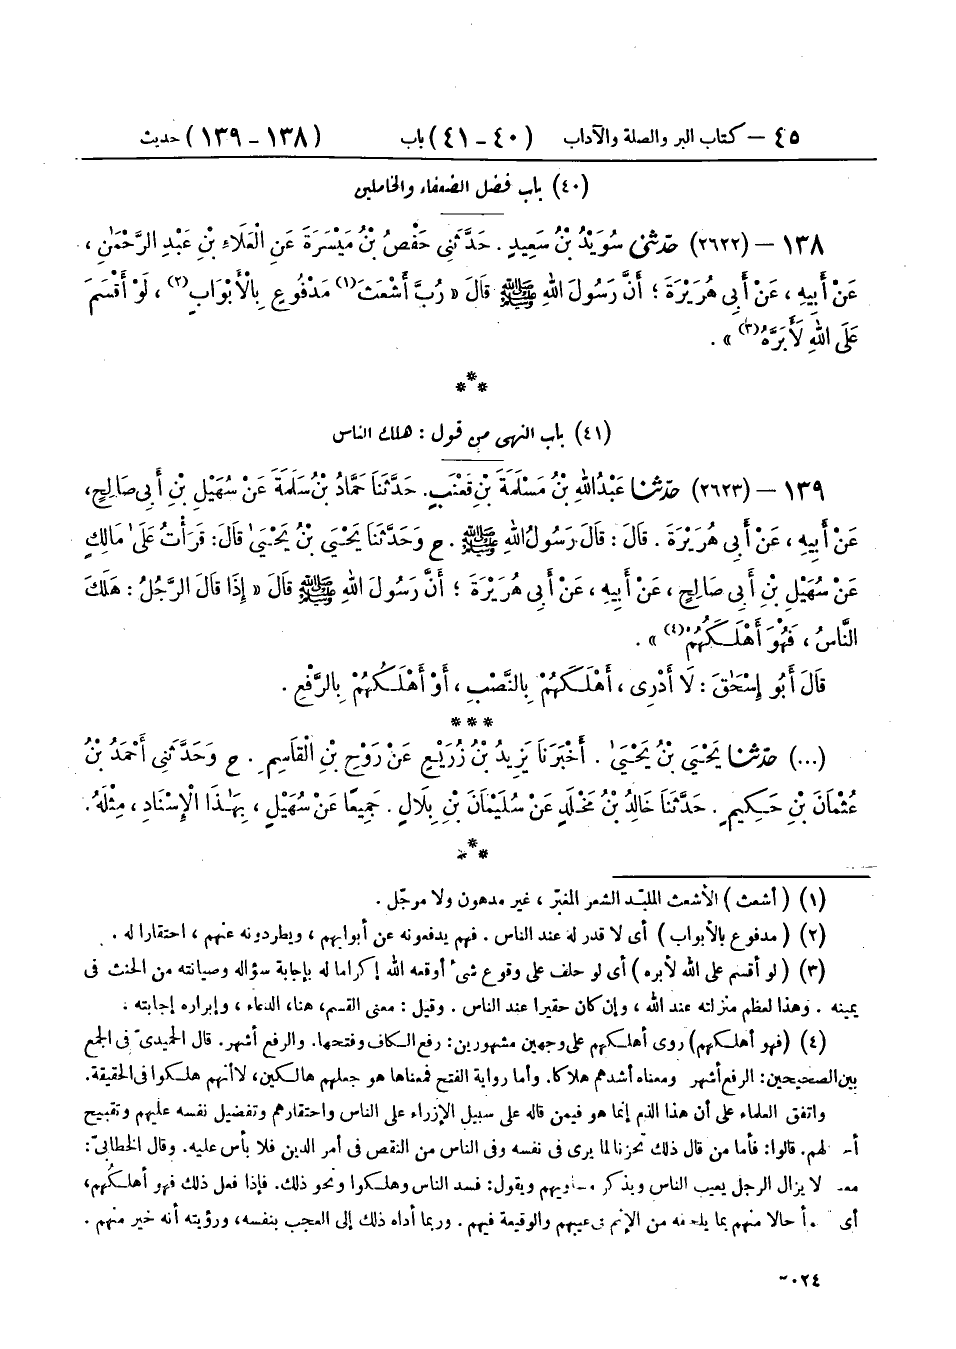 ٤٥ – كتاب البر والصلة والآداب (٤٠ – ٤١) باب (١٣٨ – ١٣٩) حديث
(٤٠) باب فضل الضعفاء والخاملين
١٣٨ – (٢٦٢٢) حَدَّثَنِي سُوَيْدُ بْنُ سَعِيدٍ. حَدَّثَنِي حَفْصُ بْنُ مَيْسَرَةَ عَنِ الْعَلَاءِ بْنِ عَبْدِ الرَّحْمَٰنِ،
عَنْ أَبِيهِ، عَنْ أَبِي هُرَيْرَةَ؛ أَنَّ رَسُولَ اللهِ ﷺ قَالَ «رُبَّ أَشْعَثَ(١) مَدْفُوعٍ بِالْأَبْوَابِ(٢)، لَوْ أَقْسَمَ
عَلَى اللهِ لَأَبَرَّهُ(٣)».
***
(٤١) باب النهى من قول: هلك الناس
١٣٩ – (٢٦٢٣) حَدَّثَنَا عَبْدُ اللهِ بْنُ مَسْلَمَةَ بْنِ قَعْنَبٍ. حَدَّثَنَا حَمَّادُ بْنُ سَلَمَةَ عَنْ سُهَيْلِ بْنِ أَبِي صَالِحٍ،
عَنْ أَبِيهِ، عَنْ أَبِي هُرَيْرَةَ. قَالَ: قَالَ رَسُولُ اللهِ ﷺ. ح وَحَدَّثَنَا يَحْيَى بْنُ يَحْيَىٰ قَالَ: قَرَأْتُ عَلَىٰ مَالِكٍ
عَنْ سُهَيْلِ بْنِ أَبِي صَالِحٍ، عَنْ أَبِيهِ، عَنْ أَبِي هُرَيْرَةَ؛ أَنَّ رَسُولَ اللهِ ﷺ قَالَ «إِذَا قَالَ الرَّجُلُ: هَلَكَ
النَّاسُ، فَهُوَ أَهْلَكُهُمْ(٤)».
قَالَ أَبُو إِسْحَٰقَ: لَا أَدْرِى، أَهْلَكَهُمْ بِالنَّصْبِ، أَوْ أَهْلَكُهُمْ بِالرَّفْعِ.
***
(...) حَدَّثَنَا يَحْيَى بْنُ يَحْيَىٰ. أَخْبَرَنَا يَزِيدُ بْنُ زُرَيْعٍ عَنْ رَوْحِ بْنِ الْقَاسِمِ. ح وَحَدَّثَنِي أَحْمَدُ بْنُ
عُثْمَانَ بْنِ حَكِيمٍ. حَدَّثَنَا خَالِدُ بْنُ مَخْلَدٍ عَنْ سُلَيْمَانَ بْنِ بِلَالٍ. جَمِيعًا عَنْ سُهَيْلٍ، بِهَٰذَا الْإِسْنَادِ، مِثْلَهُ.
***
(١) (أشعث) الأشعث الملبّد الشعر المغبّر، غير مدهون ولا مرجّل.
(٢) (مدفوع بالأبواب) أى لا قدر له عند الناس. فهم يدفعونه عن أبوابهم، ويطردونه عنهم، احتقارا له.
(٣) (لو أقسم على الله لأبره) أى لو حلف على وقوع شىء أوقعه الله إكراما له بإجابة سؤاله وصيانته من الحنث فى
يمينه. وهذا لعظم منزلته عند الله، وإن كان حقيرا عند الناس. وقيل: معنى القسم، هنا، الدعاء، وإبراره إجابته.
(٤) (فهو أهلكهم) روى أهلكهم على وجهين مشهورين: رفع الكاف وفتحها. والرفع أشهر. قال الحميدىّ فى الجمع
بين الصحيحين: الرفع أشهر ومعناه أشدهم هلاكا. وأما رواية الفتح فمعناها هو جعلهم هالكين، لا أنهم هلكوا فى الحقيقة.
واتفق العلماء على أن هذا الذم إنما هو فيمن قاله على سبيل الإزراء على الناس واحتقارهم وتفضيل نفسه عليهم وتقبيح
لهم. قالوا: فأما من قال ذلك تحزنا لما يرى فى نفسه وفى الناس من النقص فى أمر الدين فلا بأس عليه. وقال الخطابىّ:
لا يزال الرجل يعيب الناس ويذكر ويقول: فسد الناس وهلكوا ونحو ذلك. فإذا فعل ذلك فهو أهلكهم،
أى حالا منهم بما من الإثم فى عيبهم والوقيعة فيهم. وربما أداه ذلك إلى العجب بنفسه، ورؤيته أنه خير منهم.
٢٠٢٤